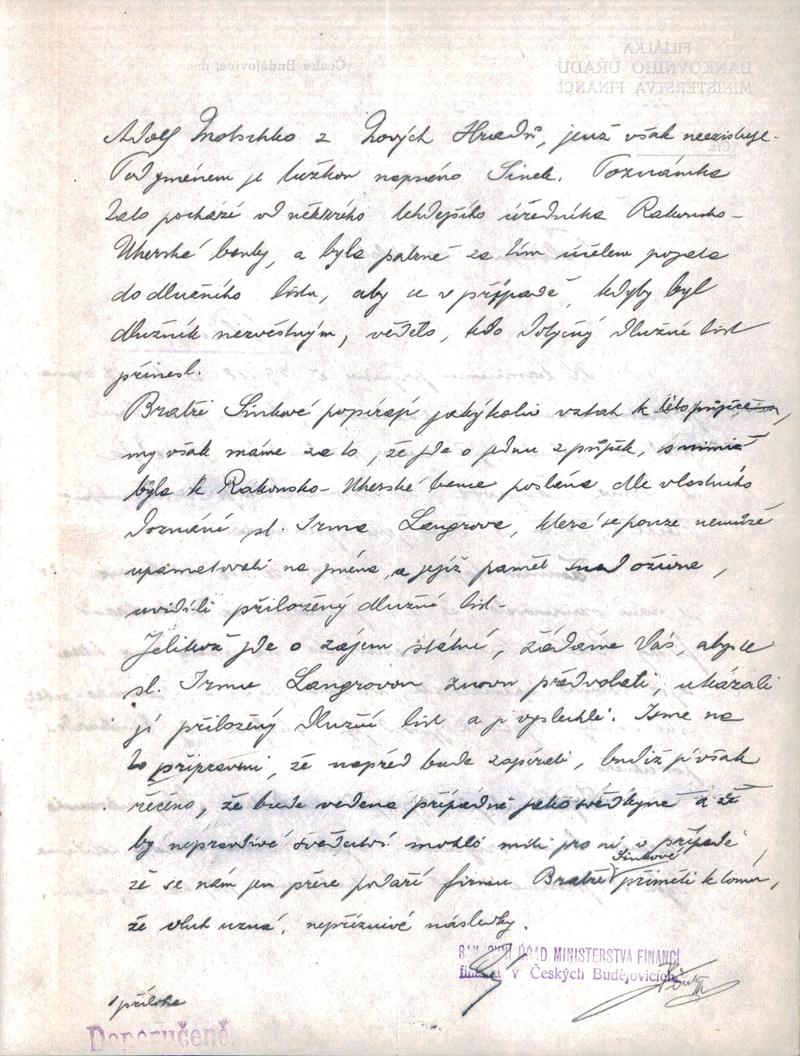 FILIÁLKA
BANKOVNÍHO ÚŘADU
MINISTERSTVA FINANCÍ
České Budějovice, dne
Adolf Motschko z Nových Hradů, jenž však neexistuje.
Pod jménem je tužkou napsáno Sinek. Poznámka
tato pochází od některého tehdejšího úředníka Rakousko-
Uherské banky, a byla patrně za tím účelem pojata
do dlužního listu, aby se v případě, kdyby byl
dlužník nezvěstným, vědělo, kdo dotyčný dlužní list
přinesl.
Bratři Sinkové popírají jakýkoliv vztah k této půjčce,
my však máme za to, že jde o jednu z půjček, s nimiž
byla k Rakousko-Uherské bance poslána dle vlastního
doznání sl. Irma Langrova, která se pouze nemůže
upamatovati na jména, a jejíž paměť snad ožívne,
uvidí-li přiložený dlužní list.
Jelikož jde o zájem státní, žádáme Vás, abyste
sl. Irmu Langrovou znovu předvolali, ukázali
jí přiložený dlužní list a ji vyslechli. Jsme na
to připraveni, že napřed bude zapírati, budiž jí však
řečeno, že bude vedena případně jako svědkyně a že
by nepravdivé svědectví mohlo míti pro ni, v případě,
že se nám jen přece podaří firmu Bratři Sinkové přiměti k tomu,
že dluh uzná, nepříznivé následky.
BANKOVNÍ ÚŘAD MINISTERSTVA FINANCÍ
filiálka v Českých Budějovicích
1 příloha
Doporučeně.